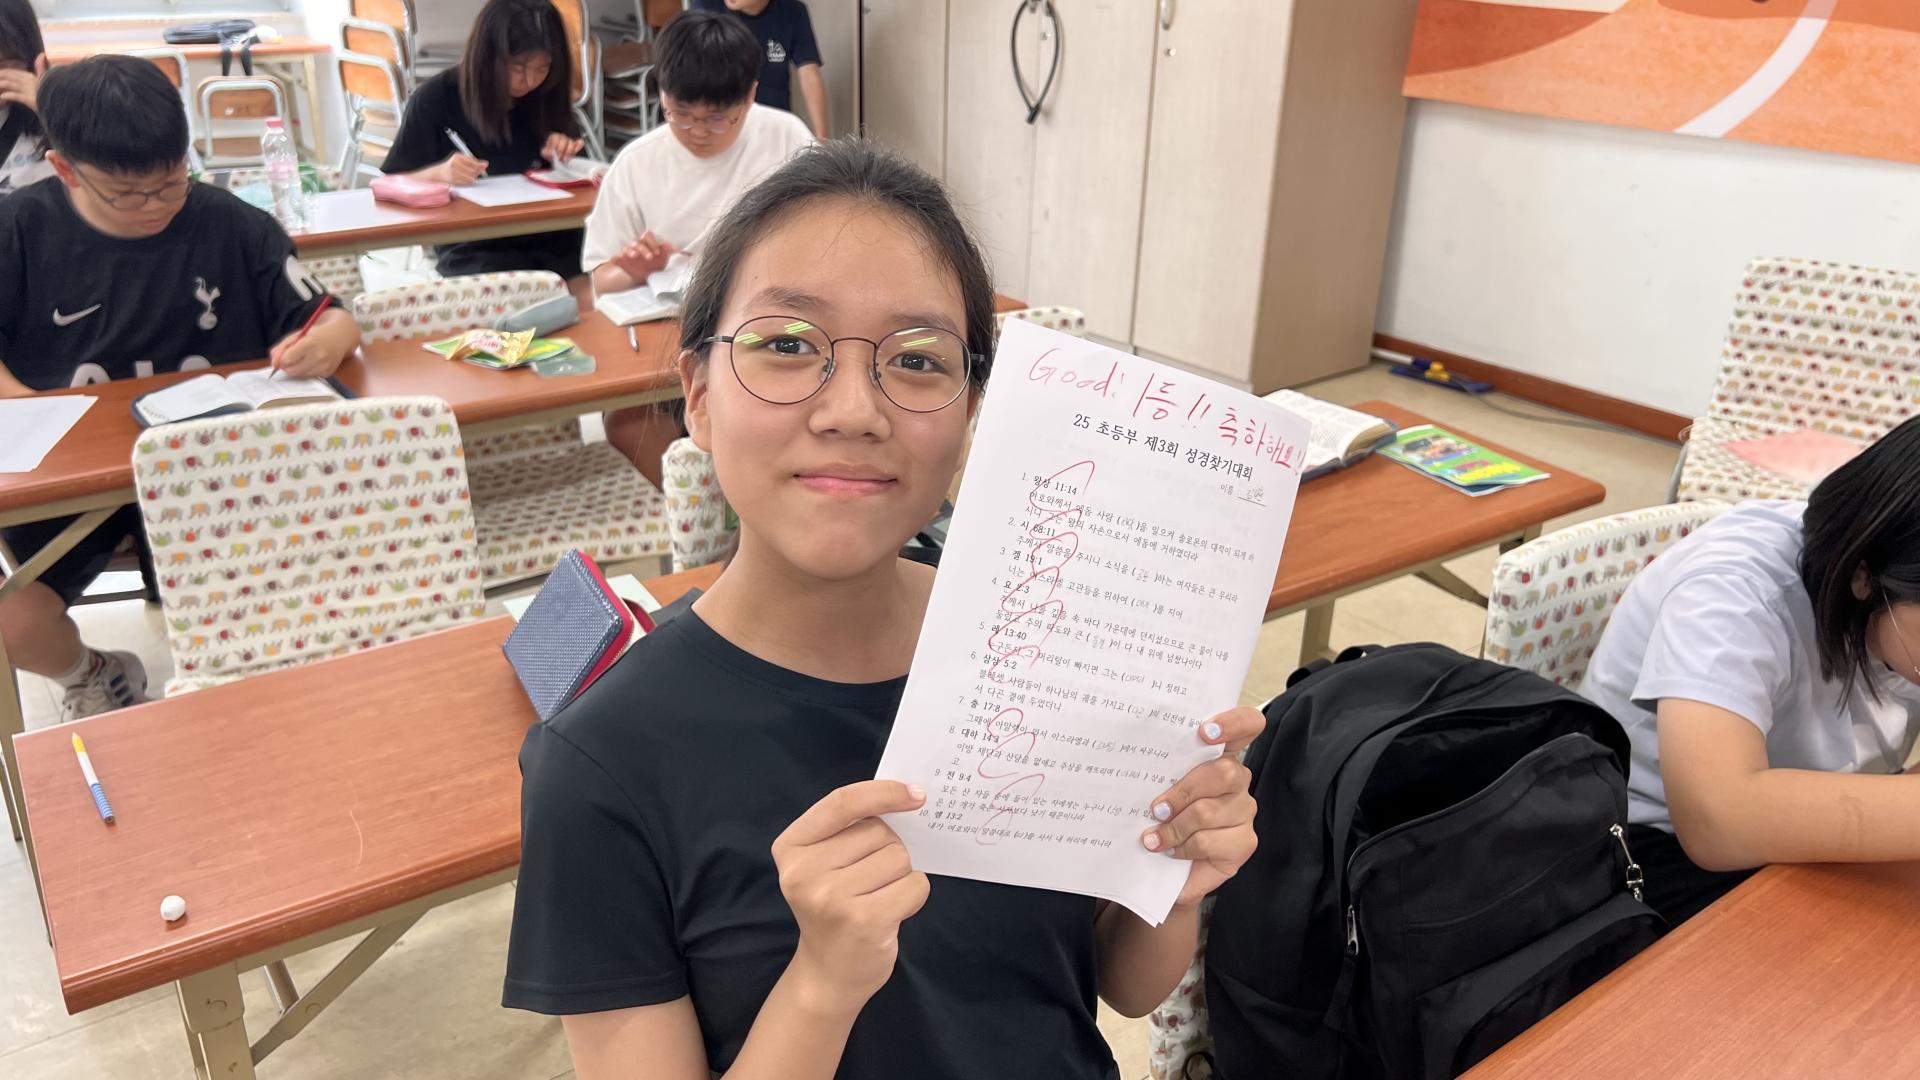 Good! 1등!! 축하해요!!
25 초등부 제3회 성경찾기대회
이름 :
1. 왕상 11:14
여호와께서 에돔 사람 ( )을 일으켜 솔로몬의 대적이 되게 하
시니 그는 왕의 자손으로서 에돔에 거하였더라
2. 시 68:11
주께서 말씀을 주시니 소식을 (공포)하는 여자들은 큰 무리라
3. 겔 19:1
너는 이스라엘 고관들을 위하여 ( )를 지어
4. 욘 2:3
주께서 나를 깊음 속 바다 가운데에 던지셨으므로 큰 물이 나를
둘렀고 주의 파도와 큰 (물결)이 다 내 위에 넘쳤나이다
5. 레 13:40
누구든지 그 머리털이 빠지면 그는 (대머리)니 정하고
6. 삼상 5:2
블레셋 사람들이 하나님의 궤를 가지고 (다곤)의 신전에 들어가
서 다곤 곁에 두었더니
7. 출 17:8
그때에 아말렉이 와서 이스라엘과 (르비딤)에서 싸우니라
8. 대하 14:3
이방 제단과 산당을 없애고 주상을 깨뜨리며 (아세라) 상을
고
9. 전 9:4
모든 산 자들 중에 들어 있는 자에게는 누구나 (소망)이 있
은 산 개가 죽은 사자보다 낫기 때문이니라
10. 렘 13:2
내가 여호와의 말씀대로 (띠)를 사서 내 허리에 띠니라